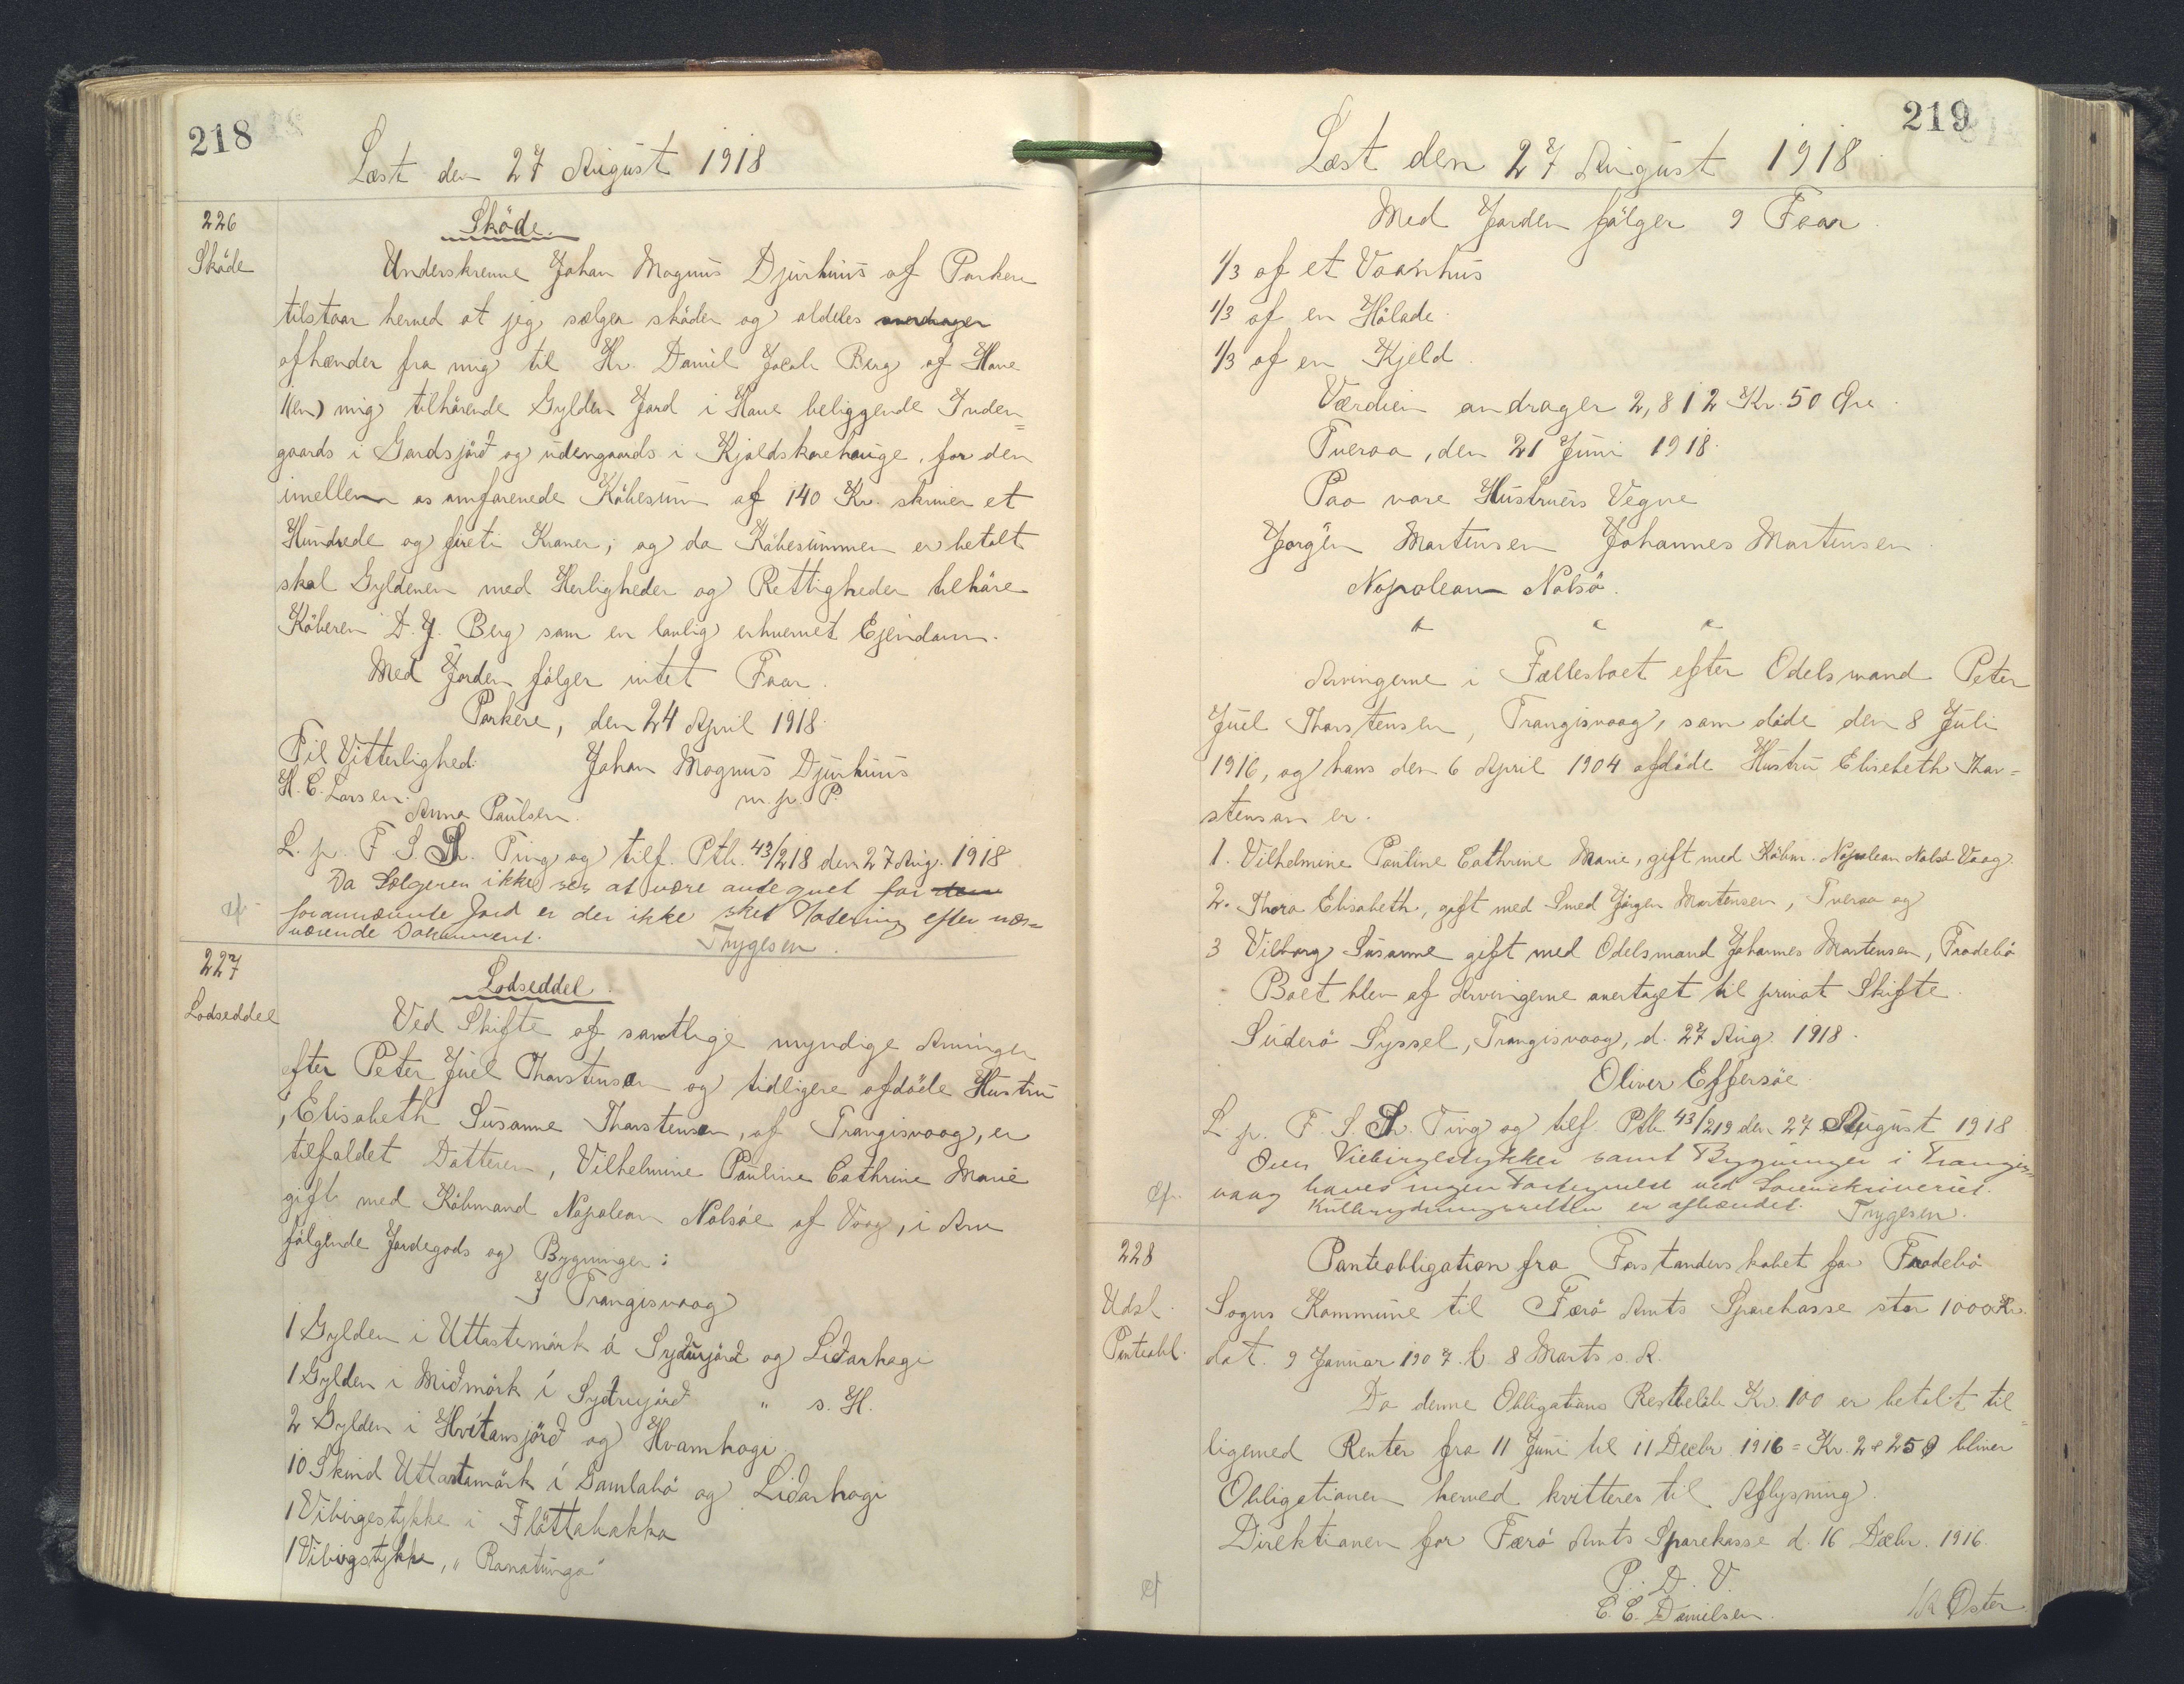 218
Læst den 27 August 1918
226
Sköde
Sköde.
Underskrevne Johan Magnus Djurhuus af Porkere
tilstaar herved at jeg sælger sköder og aldeles overdrager
afhænder fra mig til Hr. Daniel Jacob Berg af Hove
1(en) mig tilhörende Gylden Jord i Hove beliggende Inden=
gaards i Gardsjörð og udengaards i Kjoldskorehauge, for den
imellem os omforenede Köbesum af 140 Kr. skriver et
Hundrede og fireti Kroner; og da Köbesummen er betalt
skal Gyldenen med Herligheder og Rettigheder tilhöre
Köberen D. J. Berg som en lovlig erhvervet Ejendom.
Med Jorden fölger intet Faar.
Porkere, den 24 April 1918.
Til Vitterlighed: Johan Magnus Djurhuus
H. C. Larsen. m. p. P.
Anna Paulsen.
L. p. F. S. S. Ting og tilf. Ptb. 43/218 den 27 Aug. 1918
Da Sælgeren ikke ses at være antegnet for den
forannævnte Jord er der ikke sket Notering efter nær=
værende Dokument. Thygesen.
227
Lodseddel
Lodseddel.
Ved Skifte af samtlige myndige Arvinger
efter Peter Juel Thorstensen og tidligere afdöde Hustru
, Elisabeth Susanne Thorstensen, af Trangisvaag, er
tilfaldet Datteren, Vilhelmine Pauline Cathrine Marie
gift med Köbmand Napoleon Nolsöe af Vaag, i Arv
fölgende Jordegods og Bygninger:
I Trangisvaag
1 Gylden i Uttastemörk á Sydurjörð og Liðarhagi
1 Gylden i Miðmörk í Syðrujörð " s. H.
2 Gylden i Hvítansjörð og Hvamhagi
10 Skind Uttastamörk í Gamlabö og Liðarhagi
1 Vibirgestykke i Flöttabakka
1 Vibirgstykke, "Ranatunga"
219
Læst den 27 August 1918.
Med Jorden fölger 9 Faar.
1/3 af et Vaanhus
1/3 af en Hölade.
1/3 af en Kjeld.
Værdien andrager 2,812 Kr. 50 Øre.
Tveraa, den 21 Juni 1918.
Paa vore Hustruers Vegne
Jörgen Mortensen Johannes Mortensen.
Napoleon Nolsö.
Arvingerne i Fællesboet efter Odelsmand Peter
Juel Thorstensen, Trangisvaag, som döde den 8 Juli
1916, og hans den 6 April 1904 afdöde Hustru Elisebeth Thor=
stensen er.
1. Vilhelmine Pauline Cathrine Marie, gift med Köbm. Napolean Nolsö Vaag.
2. Thora Elisabeth, gift med Smed Jörgen Mortensen, Tveraa og
3 Vilborg Susanne gift med Odelsmand Johannes Mortensen, Frodebö
Boet blev af Arvingerne overtaget til privat Skifte.
Suderö Syssel, Trangisvaag, d. 27 Aug. 1918.
Oliver Effersöe.
L. p. F. S. S. Ting og tilf. Ptb. 43/219 den 27 August 1918
Over Viebirgestykker samt Bygninger i Trangis=
vaag haves ingen Fortegnelse ved Sorenskriveriet.
Kulbrydningsretten er afhændet. Thygesen.
228
Udsl.
Panteobl.
Panteobligation fra Forstanderskabet for Frodebö
Sogns Kommune til Færö Amts Sparekasse stor 1000 Kr.
dat. 9 Januar 1907. t. 8 Marts s. A.
Da denne Obligations Restbelöb Kr. 100 er betalt til=
ligemed Renter fra 11 Juni til 11 Decbr 1916 = Kr. 2 25 Ø bliver
Obligationen herved kvitteret til Aflysning.
Direktionen for Færö Amts Sparekasse d. 16 Decbr. 1916.
P. D. V.
C. C. Danielsen. Øster.